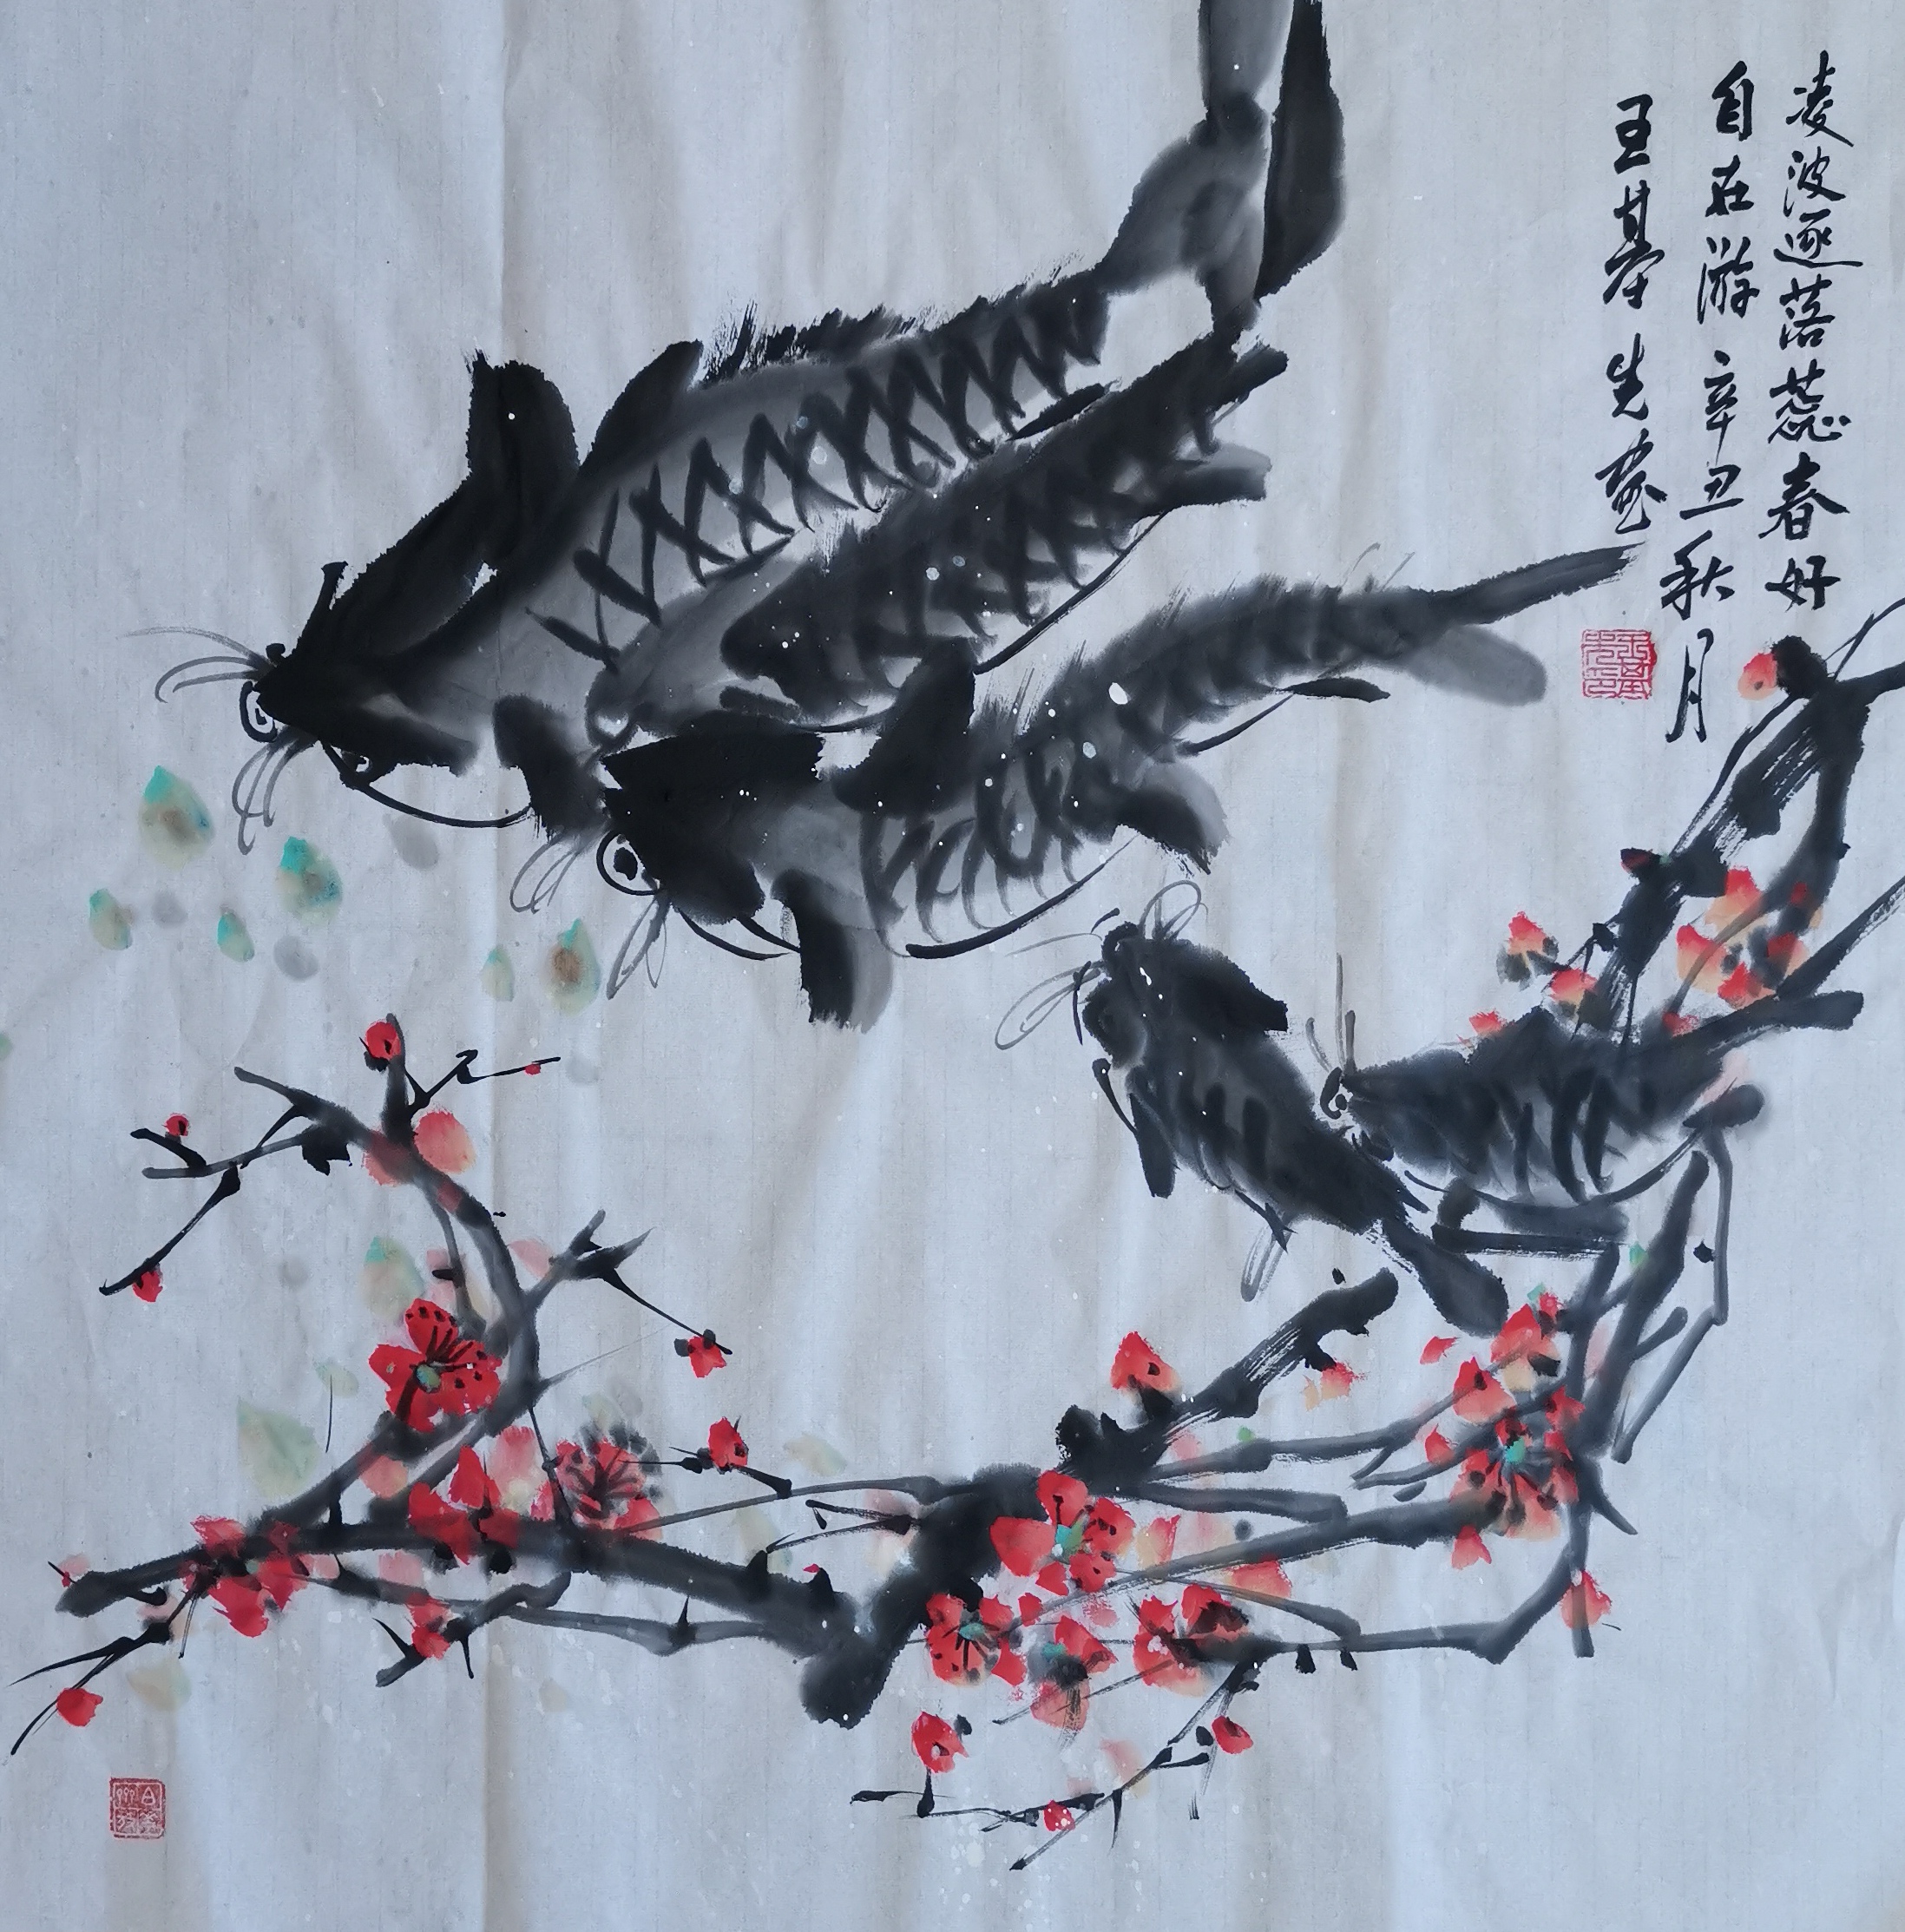 凌波逐落蕊春好
自在游辛丑秋月
王基存先画